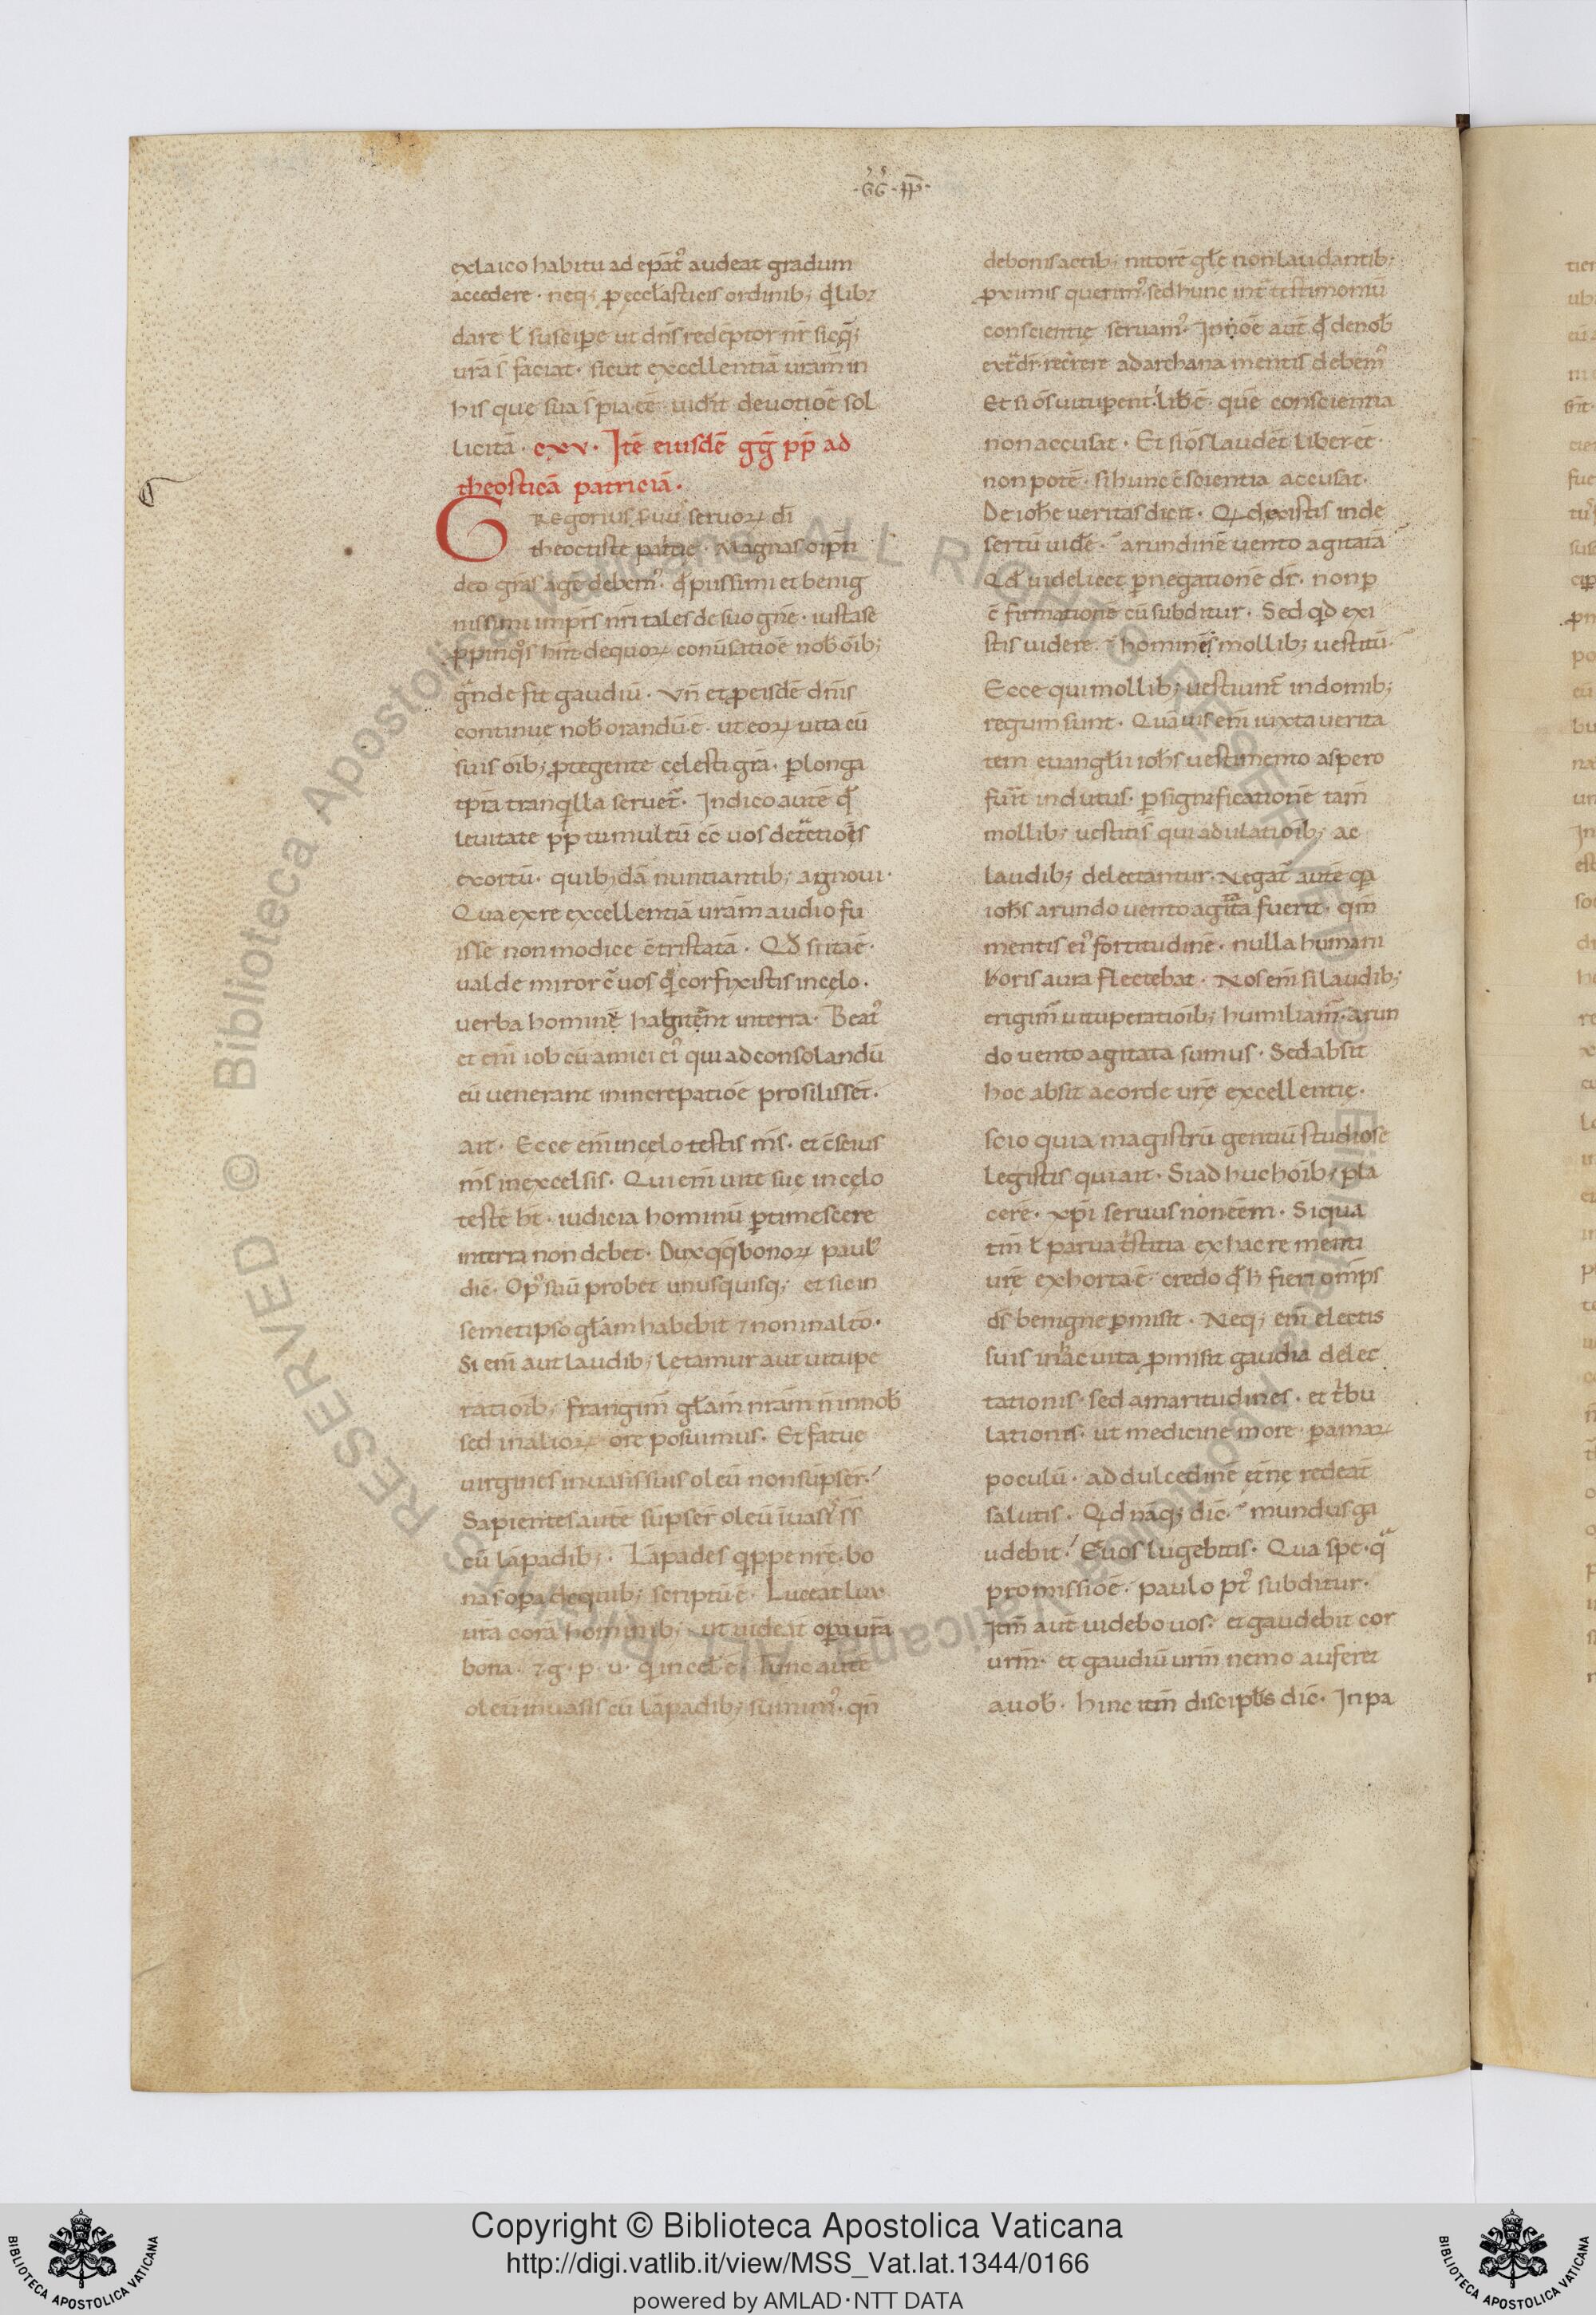 ·G̅G̅· pp̅·
ex laico habitu ad ep̅atꝰ audeat gradum
accedere · neq; ꝓ eccl̅asticis ordinib; qͥlib;
dare ł suscipe ut dn̅s rede̅ptor nr̅ sicq̅;
ura̅ s̅ faciat · sicut excellentia̅ uram̅ in
his que sua s̅ pia ee̅ uidit deuotioe̅ sol
licita̅ · cxv · Ite̅ eiusde̅ gg̅ pp̅ ad
theostica̅ patricia̅ ·
Gregorius seruuꝫ di̅
theoctiste patͥtie · Magnas oip̅ti
deo gra̅s age̅ debemꝰ · qđ piissimi et benig
nissimi impr̅s nr̅i tales de suo gn̅e · iusta se
ꝓpinqͦs hn̅t de quoꝝ conu̅satioe̅ nob̅ oib̅;
gͣnde sit gaudiu̅ · Vn̅ et ꝓ eisde̅ dn̅is
continuę nob̅ orandu̅ · e̅ · ut eoꝝ uita cu̅
suis oib̅; ꝓtegente cęlesti gra̅ · ꝑ longa
tp̅ra tranqͥlla seruet̅ · Indico aute̅ qđ
leuitate pp̅ tumultu̅ ee̅ uos detͣctio̅es
exortu̅ · quib;da̅ nuntiantib; agnoui ·
Qua ex re excellentia̅ uram̅ audio fu
isse non modice c̅tristata̅ · Qđ si ita e̅ ·
ualde miror c̅ uos qͥ cor fixistis in cęlo ·
uerba homine̅ habitent̅ in terra · Beatꝰ
et eni̅ iob cu̅ amici eiꝰ qui ad consolandu̅
eu̅ uenerant in increpatioe̅ prosilisset̅ ·
ait · Ecce eni̅ in celo testis ms̅ · et c̅scius
ms̅ in excelsis · Qui eni̅ uite suę in cęlo
teste̅ ht̅ · iudicia hominu̅ ꝑtimescere
in terra non debet · Dux qq̅ bonoꝝ paulꝰ
dic̅ · Opꝰ suu̅ probet unusquisq; et sic in
semetipso gła̅m habebit ⁊ non in alto̅ ·
Si eni̅ aut laudib; lętamur aut uitupe
ratioib̅; frangim̅ gła̅m nra̅m n̅ in nob̅
sed in alioꝝ ore posuimus · Et fatue
uirgines in uasis suis oleu̅ non su̅pser̅ ·
Sapientes aute̅ su̅pser̅ oleu̅ i̅ uasiˢ ss
cu̅ la̅padib; · La̅pades qͥppe nre̅ bo
na s̅ opa de quib; scriptu̅ e̅ · Luceat lux
ura̅ cora̅ hominib; · ut uidea̅t opa ura̅
bona · ⁊ g · p · u · qͥ in cel̅ e̅ · Tunc aute̅
oleu̅ in uasis cu̅ la̅padib; sumimꝰ · qn̅
de bonis actib; nitore̅ głe̅ non laudantib;
ꝓximis querimꝰ · sed hunc int̅ testimoniu̅
conscientię seruamꝰ · In noe̅ aut̅ qđ de nob̅
extͣ dr̅ recͥrere ad archana mentis debemꝰ
Et si oe̅s uituꝑent · lib̅ e̅ · que̅ conscientia
non accusat · Et si oe̅s laude̅t liber e̅e̅ ·
non pote̅ · si hunc c̅scientia accusat ·
De ioh̅e ueritas dicit · Qͥd existis in de
sertu̅ uide̅ · arundine̅ uento agitata̅
Qđ uidelicet ꝑ negatione̅ dr̅ · non ꝑ
c̅firmatione̅ cu̅ subditur · Sed qͥd exi
stis uidere · homine̅ mollib; uestitu̅ ·
Ecce qui mollib; uestiunt̅ in domib;
regum sunt · Quauis eni̅ iuxta uerita
tem euangl̅ii ioh̅s uestimento aspero
fuit̅ indutus · ꝑ significatione̅ tam̅
mollib; uestitis qui adulatioib̅; ac
laudib; delectantur · Negat̅ aute̅ qͥa
ioh̅s arundo uento agitata fuerit · qm̅
mentis eiꝰ fortitudine̅ · nulla humani
boris aura flectebat · Nos eni̅ si laudib;
erigim̅ uituperatioib̅; humiliam̅ · arun
do uento agitata sumus · Sed absit
hoc absit a corde ure̅ excellentię ·
scio quia magistru̅ gentiu̅ studiose
legistis qui ait · Si adhuc hoi̅b; pla
cere̅ · xp̅i seruus non ee̅m · Si qua
tm̅ ł parua tͥstitia ex hac re menti
ure̅ exhorta e̅ · credo qđ h̅ fieri omp̅s
ds̅ benigne ꝑmisit · Neq; eni̅ electis
suis in hac uita ꝓmisit gaudia delec
tationis · sed amaritudines · et tͥbu
lationis · ut medicine more ꝑ amaꝝ
poculu̅ · ad dulcedine̅ et̅nę redeat̅
salutis · Qͥd naq̅; dic̅ · mundus ga
udebit · E̅ uos lugebitis · Qua spe · qͣ
promissioe̅ · paulo ptꝰ subditur ·
Itm̅ aut̅ uidebo uos · et gaudebit cor
urm̅ · et gaudiu̅ urm̅ nemo auferet
a uob̅ · Hinc itm̅ discipl̅is dic̅ · In pa
Copyright © Biblioteca Apostolica Vaticana
http://digi.vatlib.it/view/MSS_Vat.lat.1344/0166
powered by AMLAD·NTT DATA
BIBLIOTECA APOSTOLICA VATICANA
BIBLIOTECA APOSTOLICA VATICANA